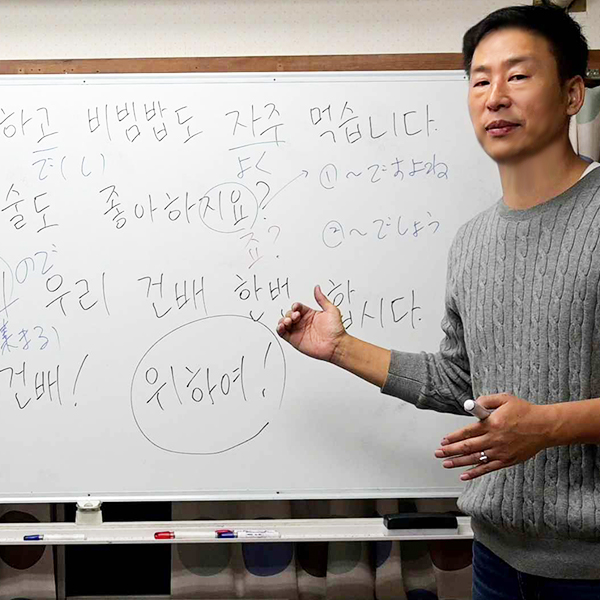 하고 비빔밥도 자주 먹습니다.
で(し) よく ①~ですよね
술도 좋아하지요?
죠? ②~でしょう
ので
우리 건배 한번 합시다.
集まる)
건배! 위하여!